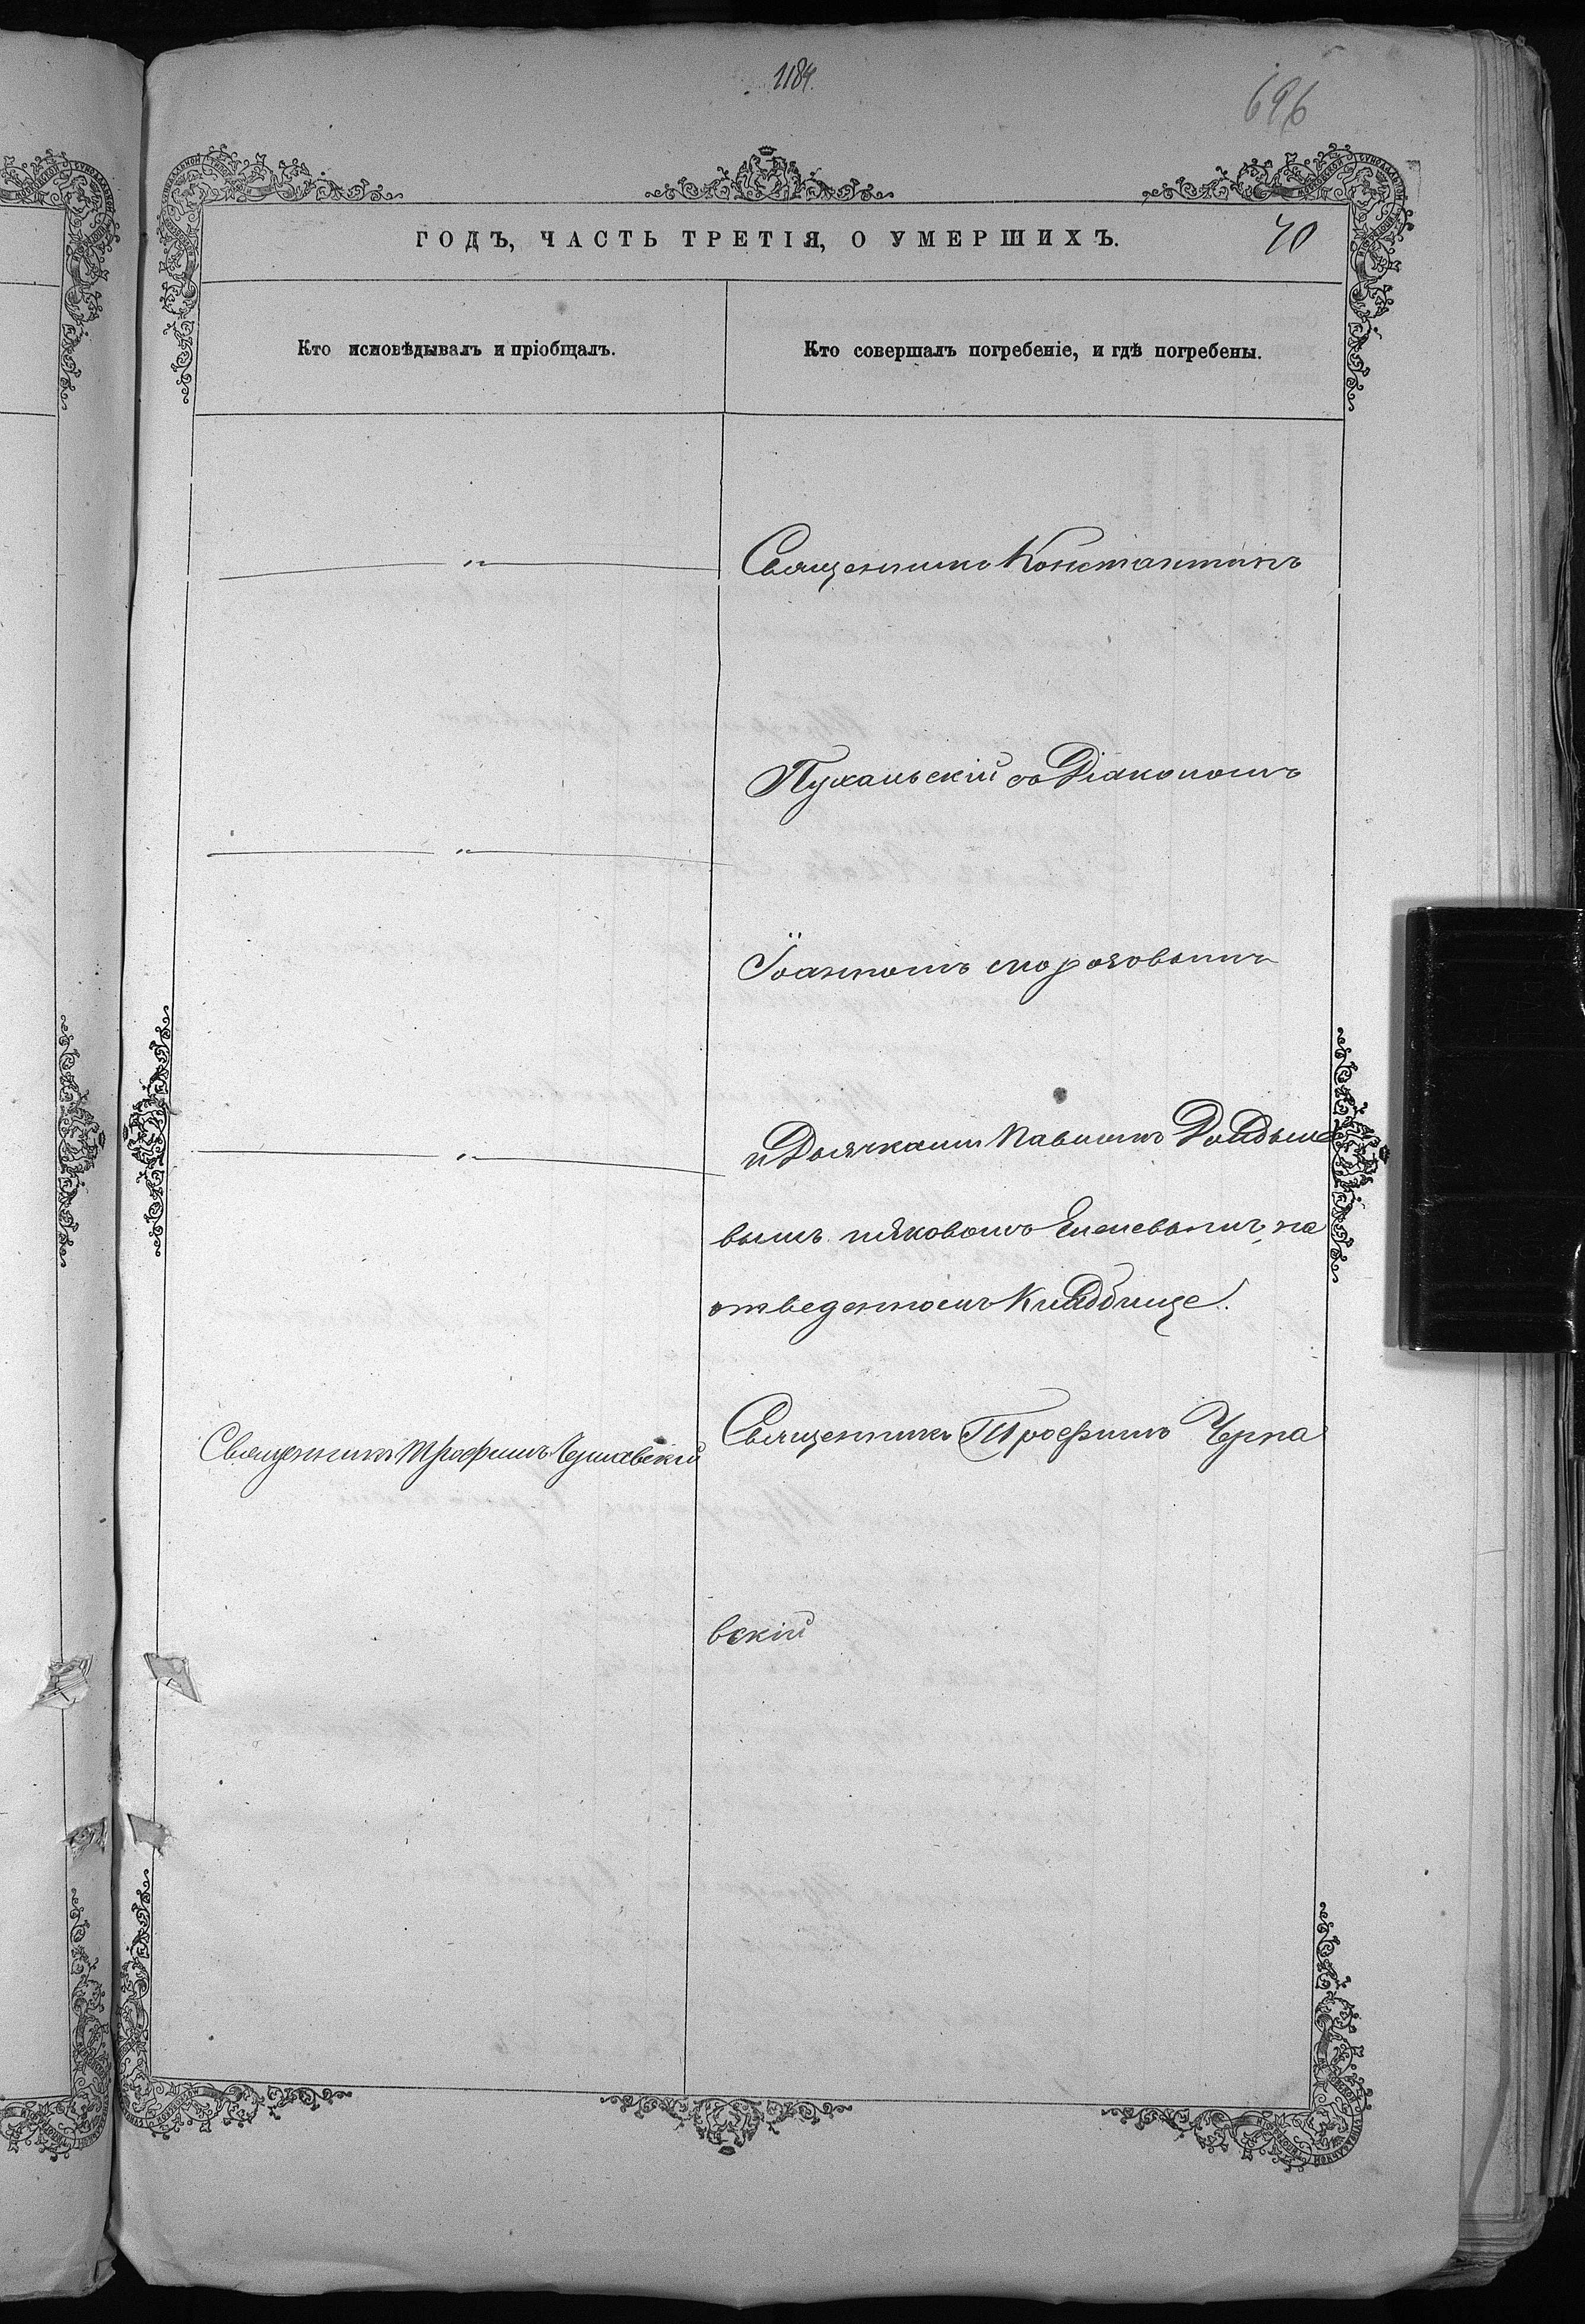 1184.
696
ГОДЪ, ЧАСТЬ ТРЕТІЯ, О УМЕРШИХЪ.
40
Кто исповѣдывалъ и пріобщалъ.
Кто совершалъ погребеніе, и гдѣ погребены.
Священникъ Константинъ
Пухальскій съ Діакономъ
Іоанномъ Морозовымъ
и Дьячками Павломъ
вымъ и Яковомъ на
отведенномъ Кладбище.
Священникъ Трофимъ Чернавскій
Священникъ Трофимъ Черна
вскій